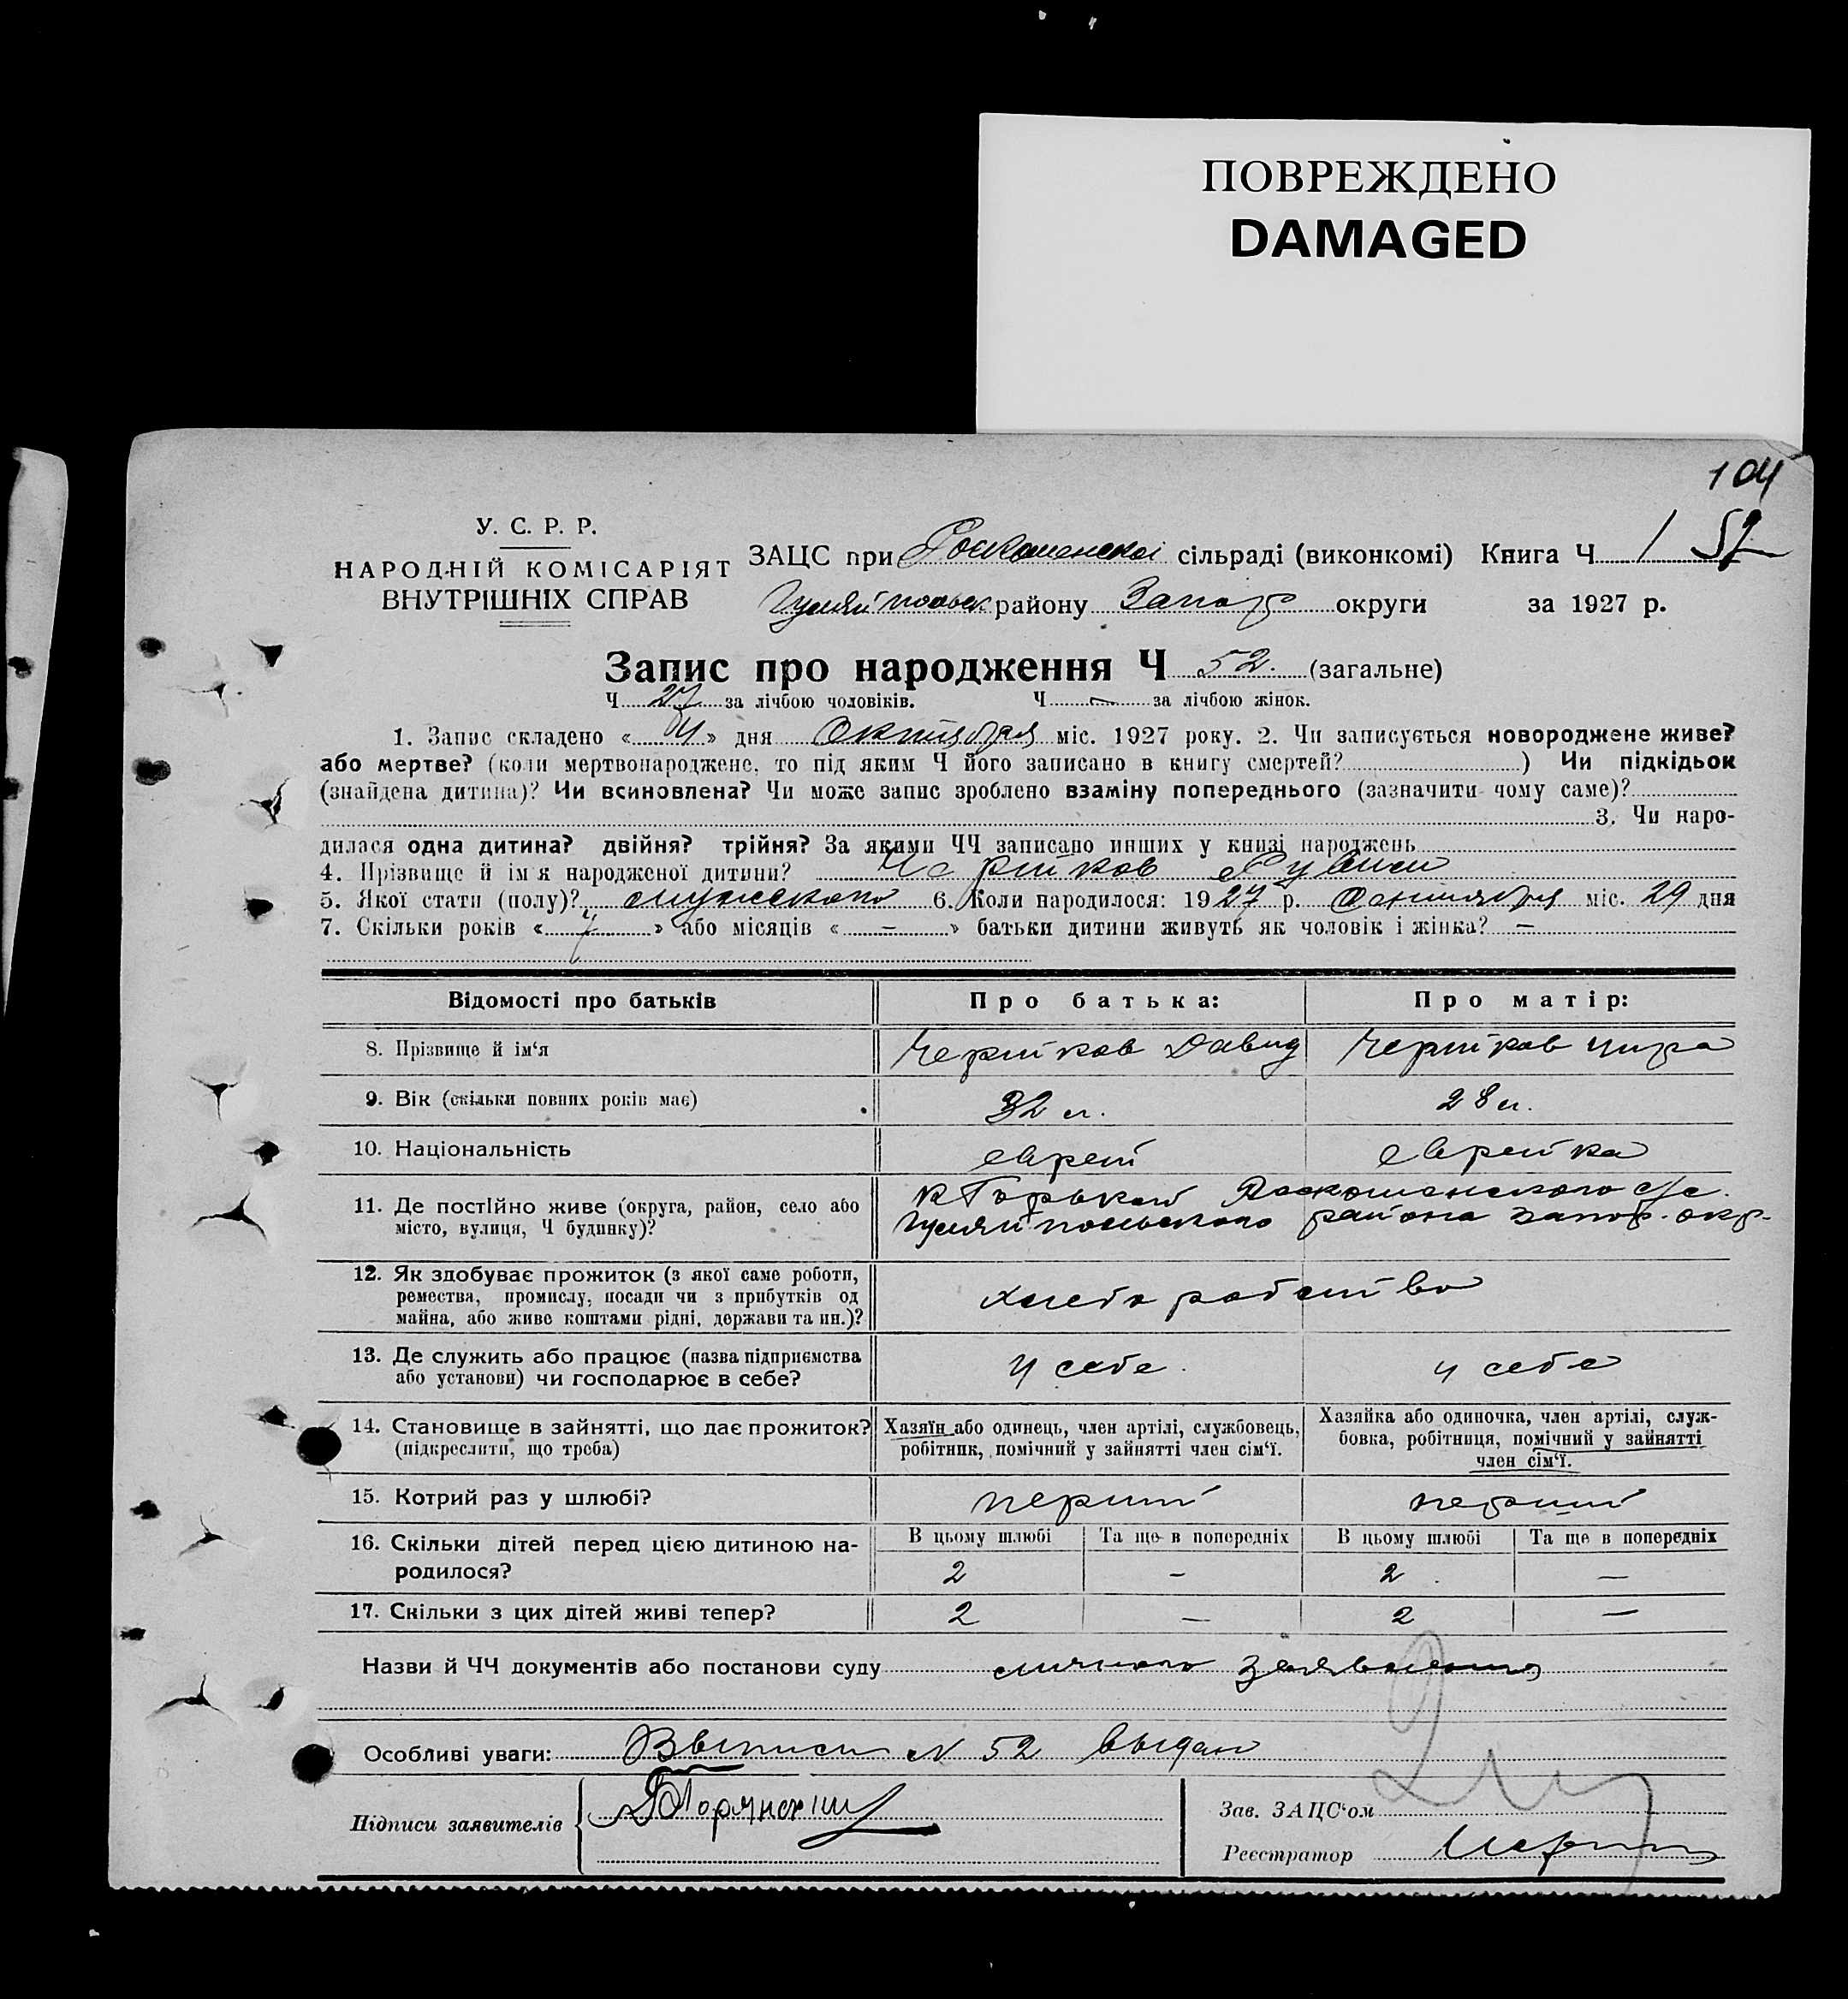 ПОВРЕЖДЕНО
DAMAGED
104
У. С. Р. Р.
НАРОДНІЙ КОМІСАРІЯТ
ВНУТРІШНІХ СПРАВ
ЗАЦС при сільраді (виконкомі) Книга Ч 1 52
Гуляйпольск району Запор округи за 1927 р.
Запис про народження Ч 52. (загальне)
Ч 27 за лічбою чоловіків. Ч — за лічбою жінок.
1. Запис складено « 4 » дня Октября міс. 1927 року. 2. Чи записується новороджене живе?
або мертве? (коли мертвонароджене, то під яким Ч його записано в книгу смертей? ) Чи підкідьок
(знайдена дитина)? Чи всиновлена? Чи може запис зроблено взаміну попереднього (зазначити чому саме)?
3. Чи наро-
дилася одна дитина? двійня? трійня? За якими ЧЧ записано инших у книзі народжень
4. Прізвище й ім'я народженої дитини?
5. Якої стати (полу)? мужского 6. Коли народилося: 1927 р. міс. 29 дня
7. Скільки років « 7 » або місяців « — » батьки дитини живуть як чоловік і жінка? —
Відомості про батьків Про батька: Про матір:
8. Прізвище й ім'я Давид
9. Вік (скільки повних років має) 32 л. 28 л.
10. Національність еврей еврейка
11. Де постійно живе (округа, район, село або
місто, вулиця, Ч будинку)?
к Горькой с/с.
Гуляйпольского района запор. окр.
12. Як здобуває прожиток (з якої саме роботи,
ремества, промислу, посади чи з прибутків од
майна, або живе коштами рідні, держави та ин.)?
хлеборобство
13. Де служить або працює (назва підприємства
або установи) чи господарює в себе?
у себе. у себе
14. Становище в зайнятті, що дає прожиток?
(підкреслити, що треба)
Хазяїн або одинець, член артілі, службовець,
робітник, помічний у зайнятті член сім'ї.
Хазяйка або одиночка, член артілі, служ-
бовка, робітниця, помічний у зайнятті
член сім'ї.
15. Котрий раз у шлюбі? перший перший
16. Скільки дітей перед цією дитиною на-
родилося?
В цьому шлюбі Та ще в попередніх В цьому шлюбі Та ще в попередніх
2 — 2 —
17. Скільки з цих дітей живі тепер? 2 — 2 —
Назви й ЧЧ документів або постанови суду личного заявления
Особливі уваги: Выписи N 52 выдан
Підписи заявителів
Зав. ЗАЦС'ом
Реєстратор